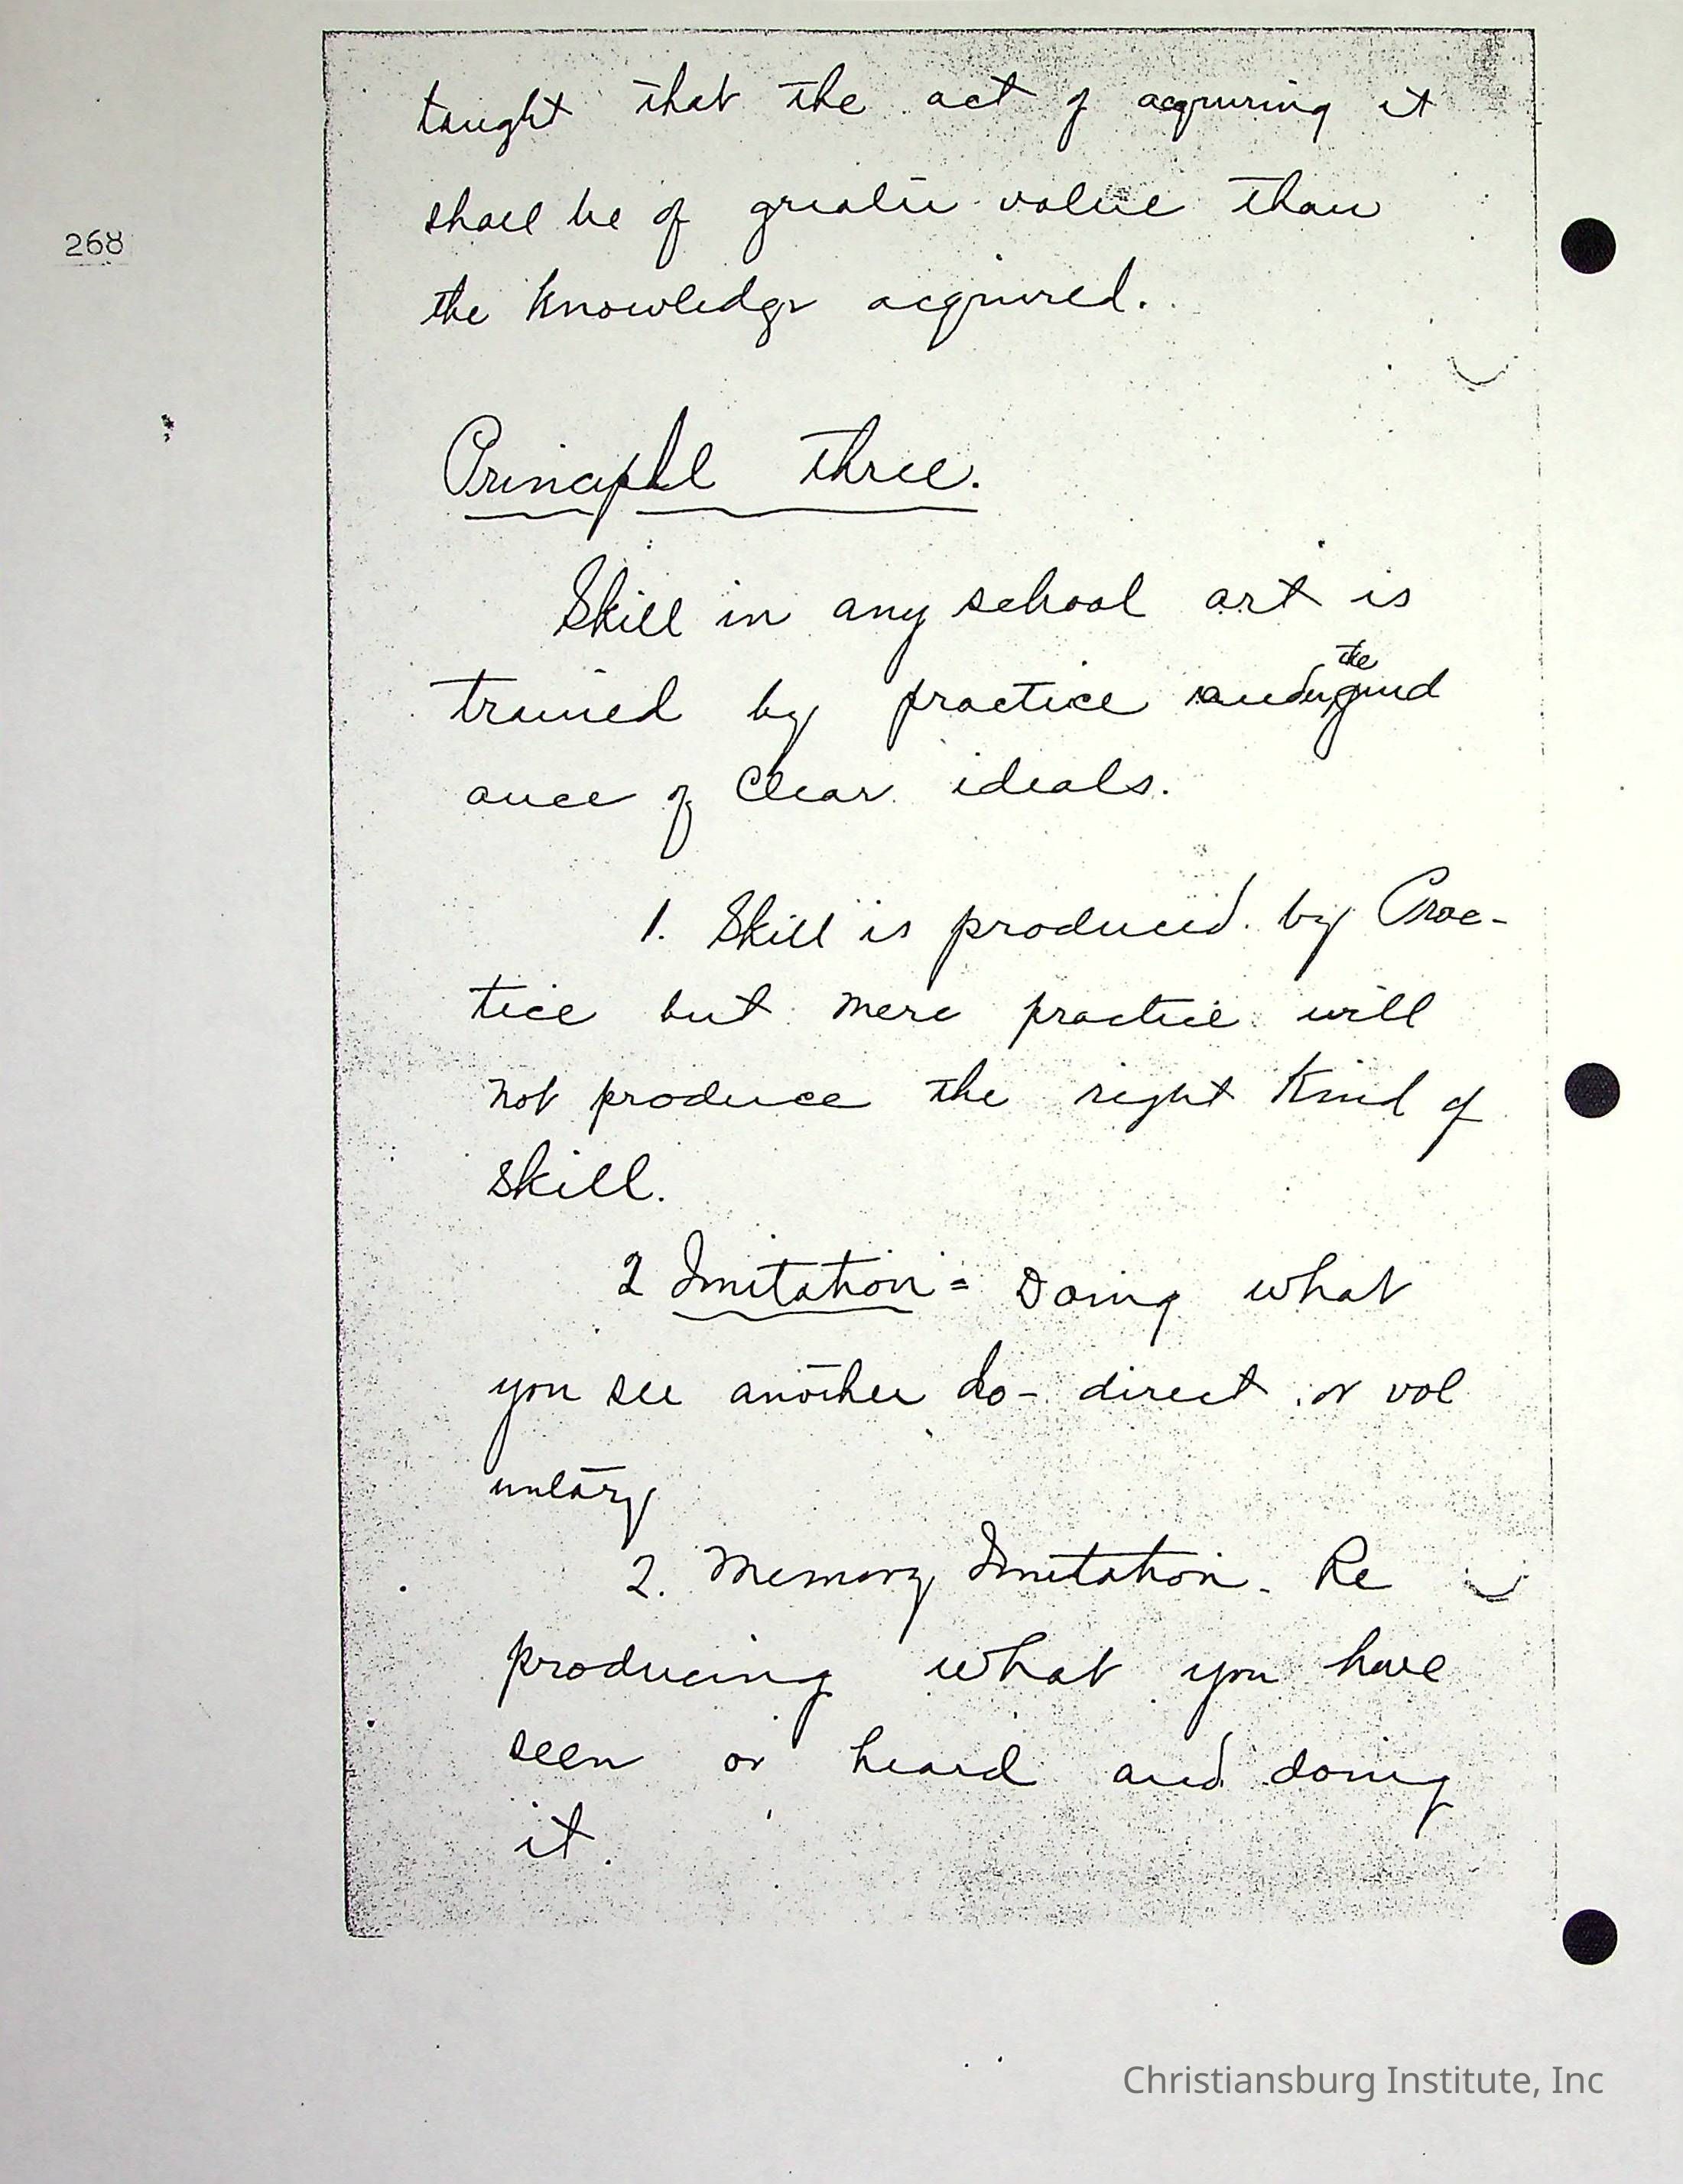 268
taught that the act of acquiring it
shall be of greater value than
the knowledge acquired.
Principle three.
Skill in any school art is
the
trained by practice under guid
ance of Clear ideals.
1. Skill is produced by Prac-
tice but mere practice will
not produce the right kind of
skill.
2 Imitation = Doing what
you see another do - direct or vol
untary
2. Memory Imitation - Re
producing what you have
seen or heard and doing
it.
Christiansburg Institute, Inc